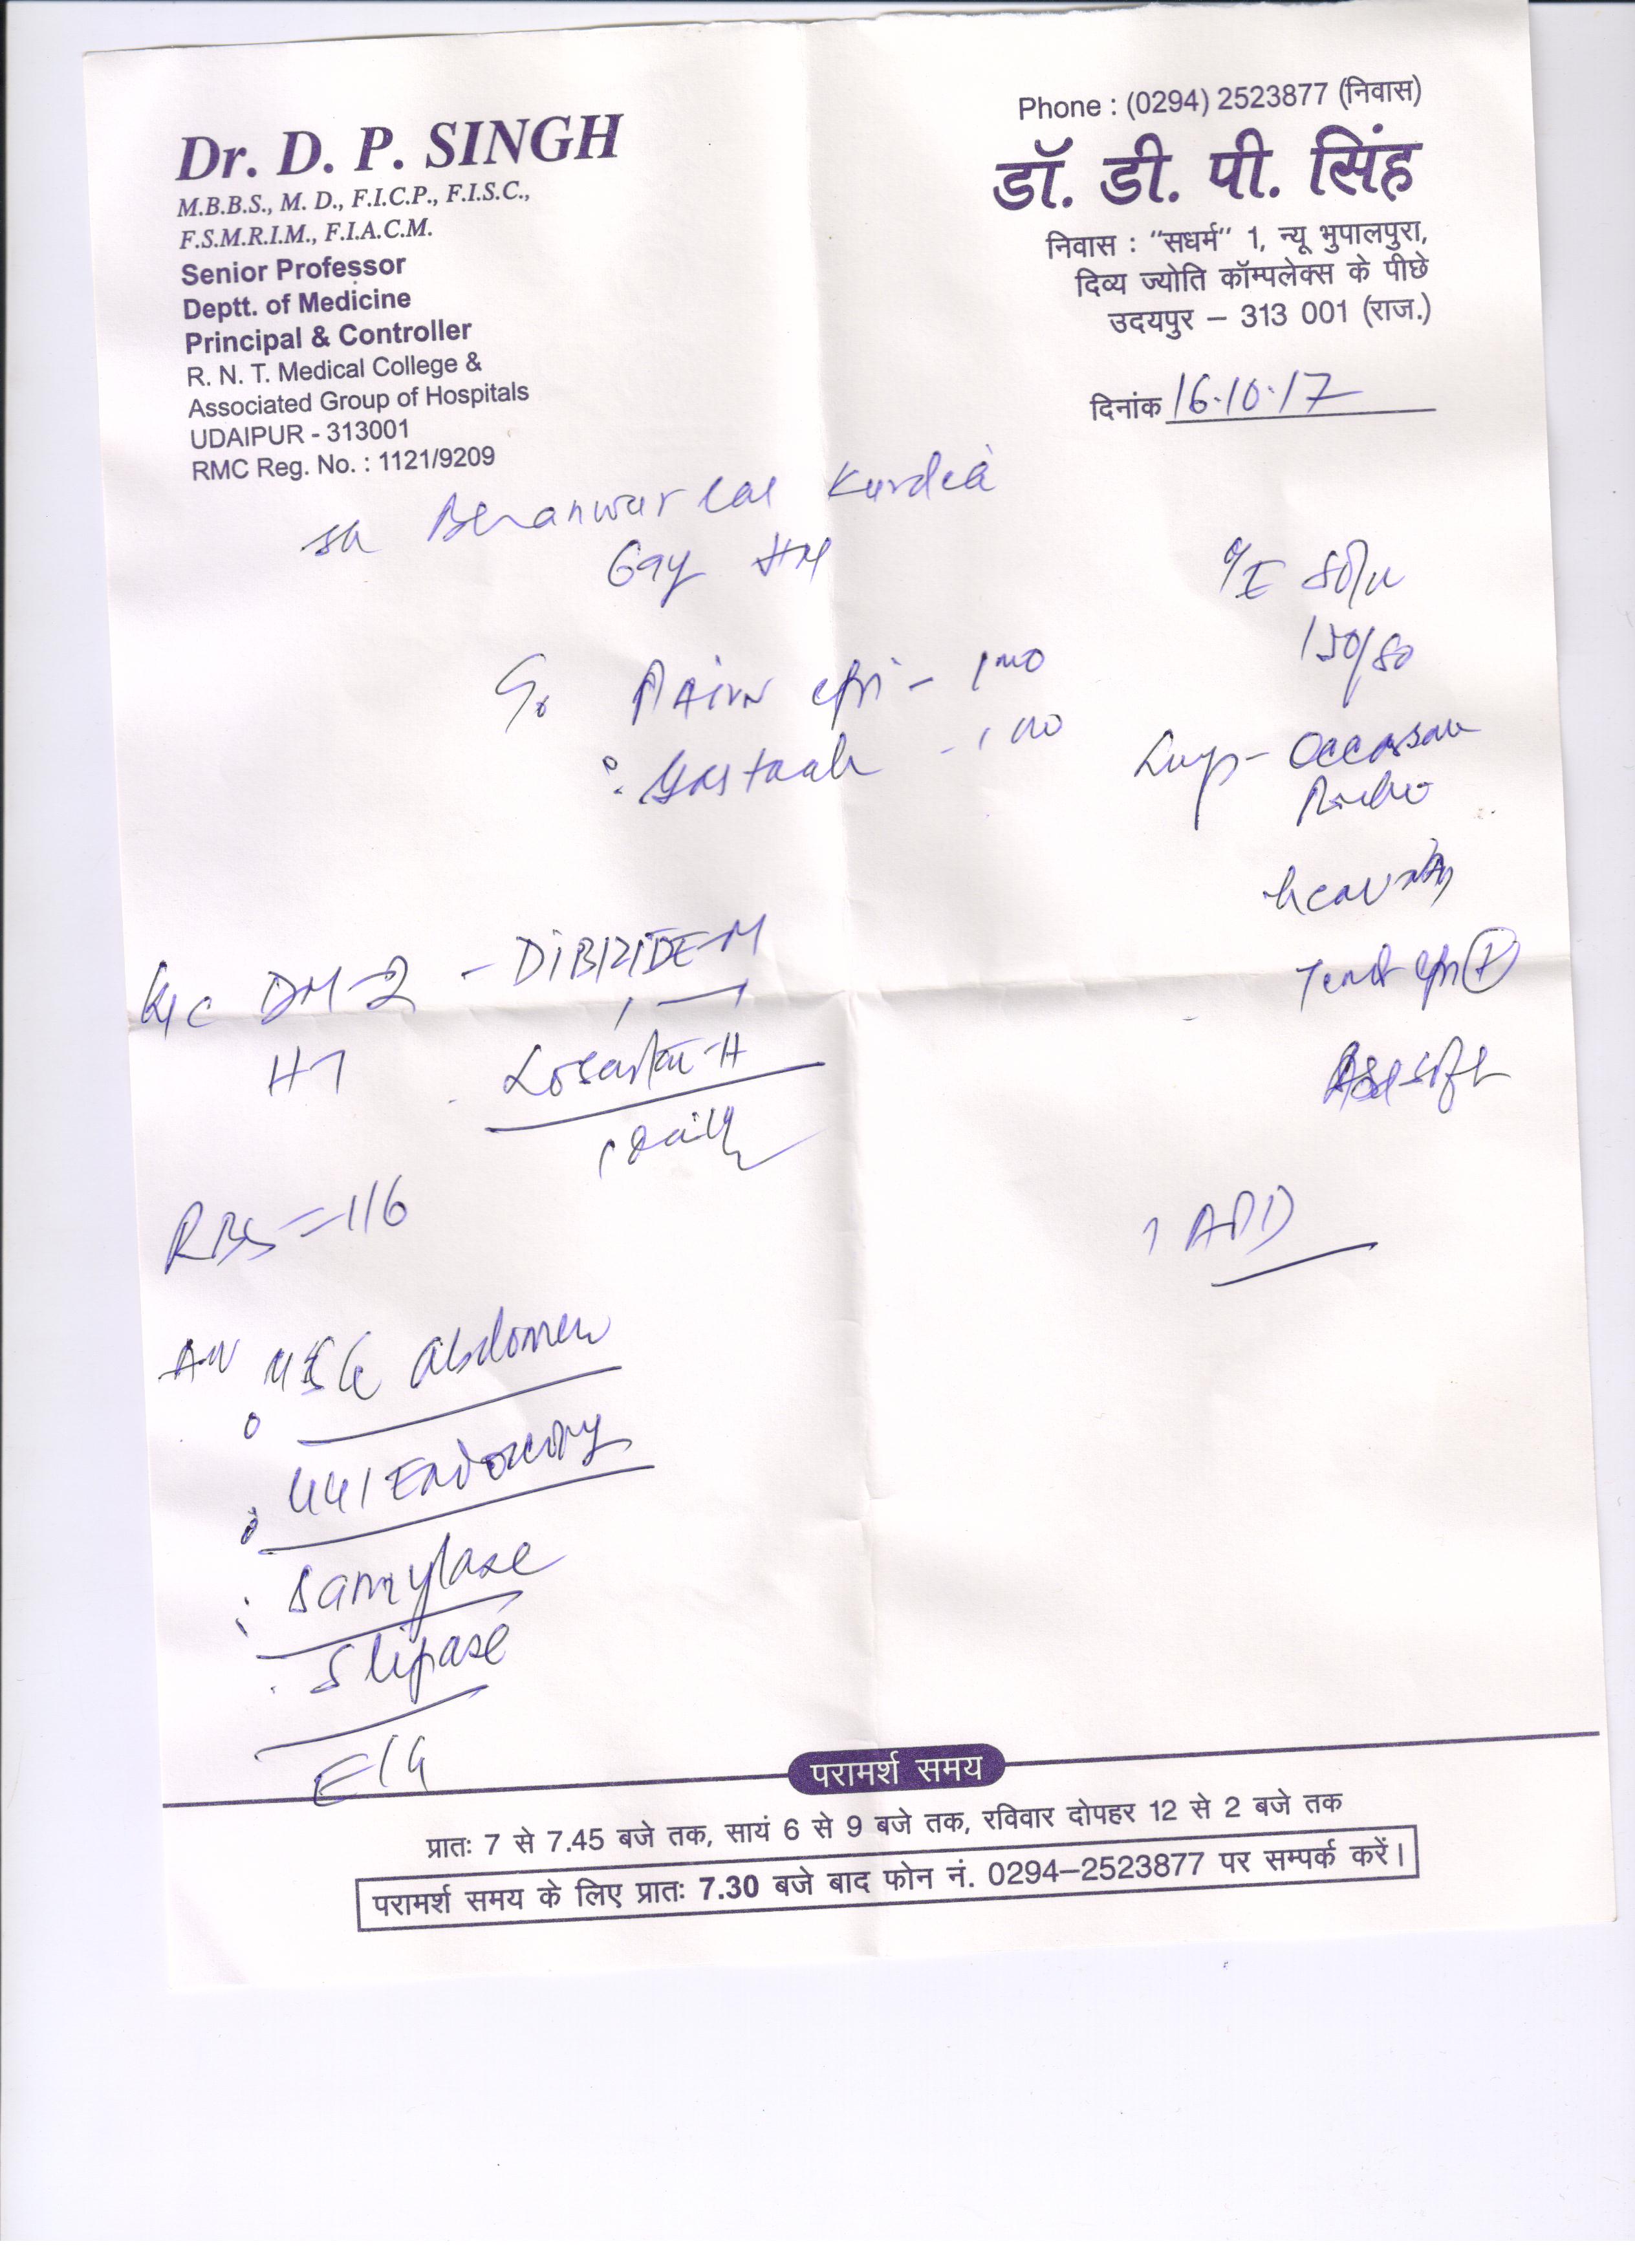 Dr. D. P. SINGH
M.B.B.S., M. D., F.I.C.P., F.I.S.C.,
F.S.M.R.I.M., F.I.A.C.M.
Senior Professor
Deptt. of Medicine
Principal & Controller
R. N. T. Medical College &
Associated Group of Hospitals
UDAIPUR - 313001
RMC Reg. No. : 1121/9209
Phone : (0294) 2523877 (निवास)
डॉ. डी. पी. सिंह
निवास : "सधर्म" 1, न्यू भुपालपुरा,
दिव्य ज्योति कॉम्पलेक्स के पीछे
उदयपुर – 313 001 (राज.)
दिनांक 16.10.17
Bhanwar Lal Kurdia
69y
PAIN epi - 1 mo
- 1 mo
O/E 80/m
150/80
Lungs -
K/C DM-2 - DIBIZIDE-M
HT Losartan-H
1 daily
RBS = 116
? APD
Adv USG abdomen
UGI Endoscopy
S amylase
S lipase
ECG
परामर्श समय
प्रातः 7 से 7.45 बजे तक, सायं 6 से 9 बजे तक, रविवार दोपहर 12 से 2 बजे तक
परामर्श समय के लिए प्रातः 7.30 बजे बाद फोन नं. 0294–2523877 पर सम्पर्क करें।